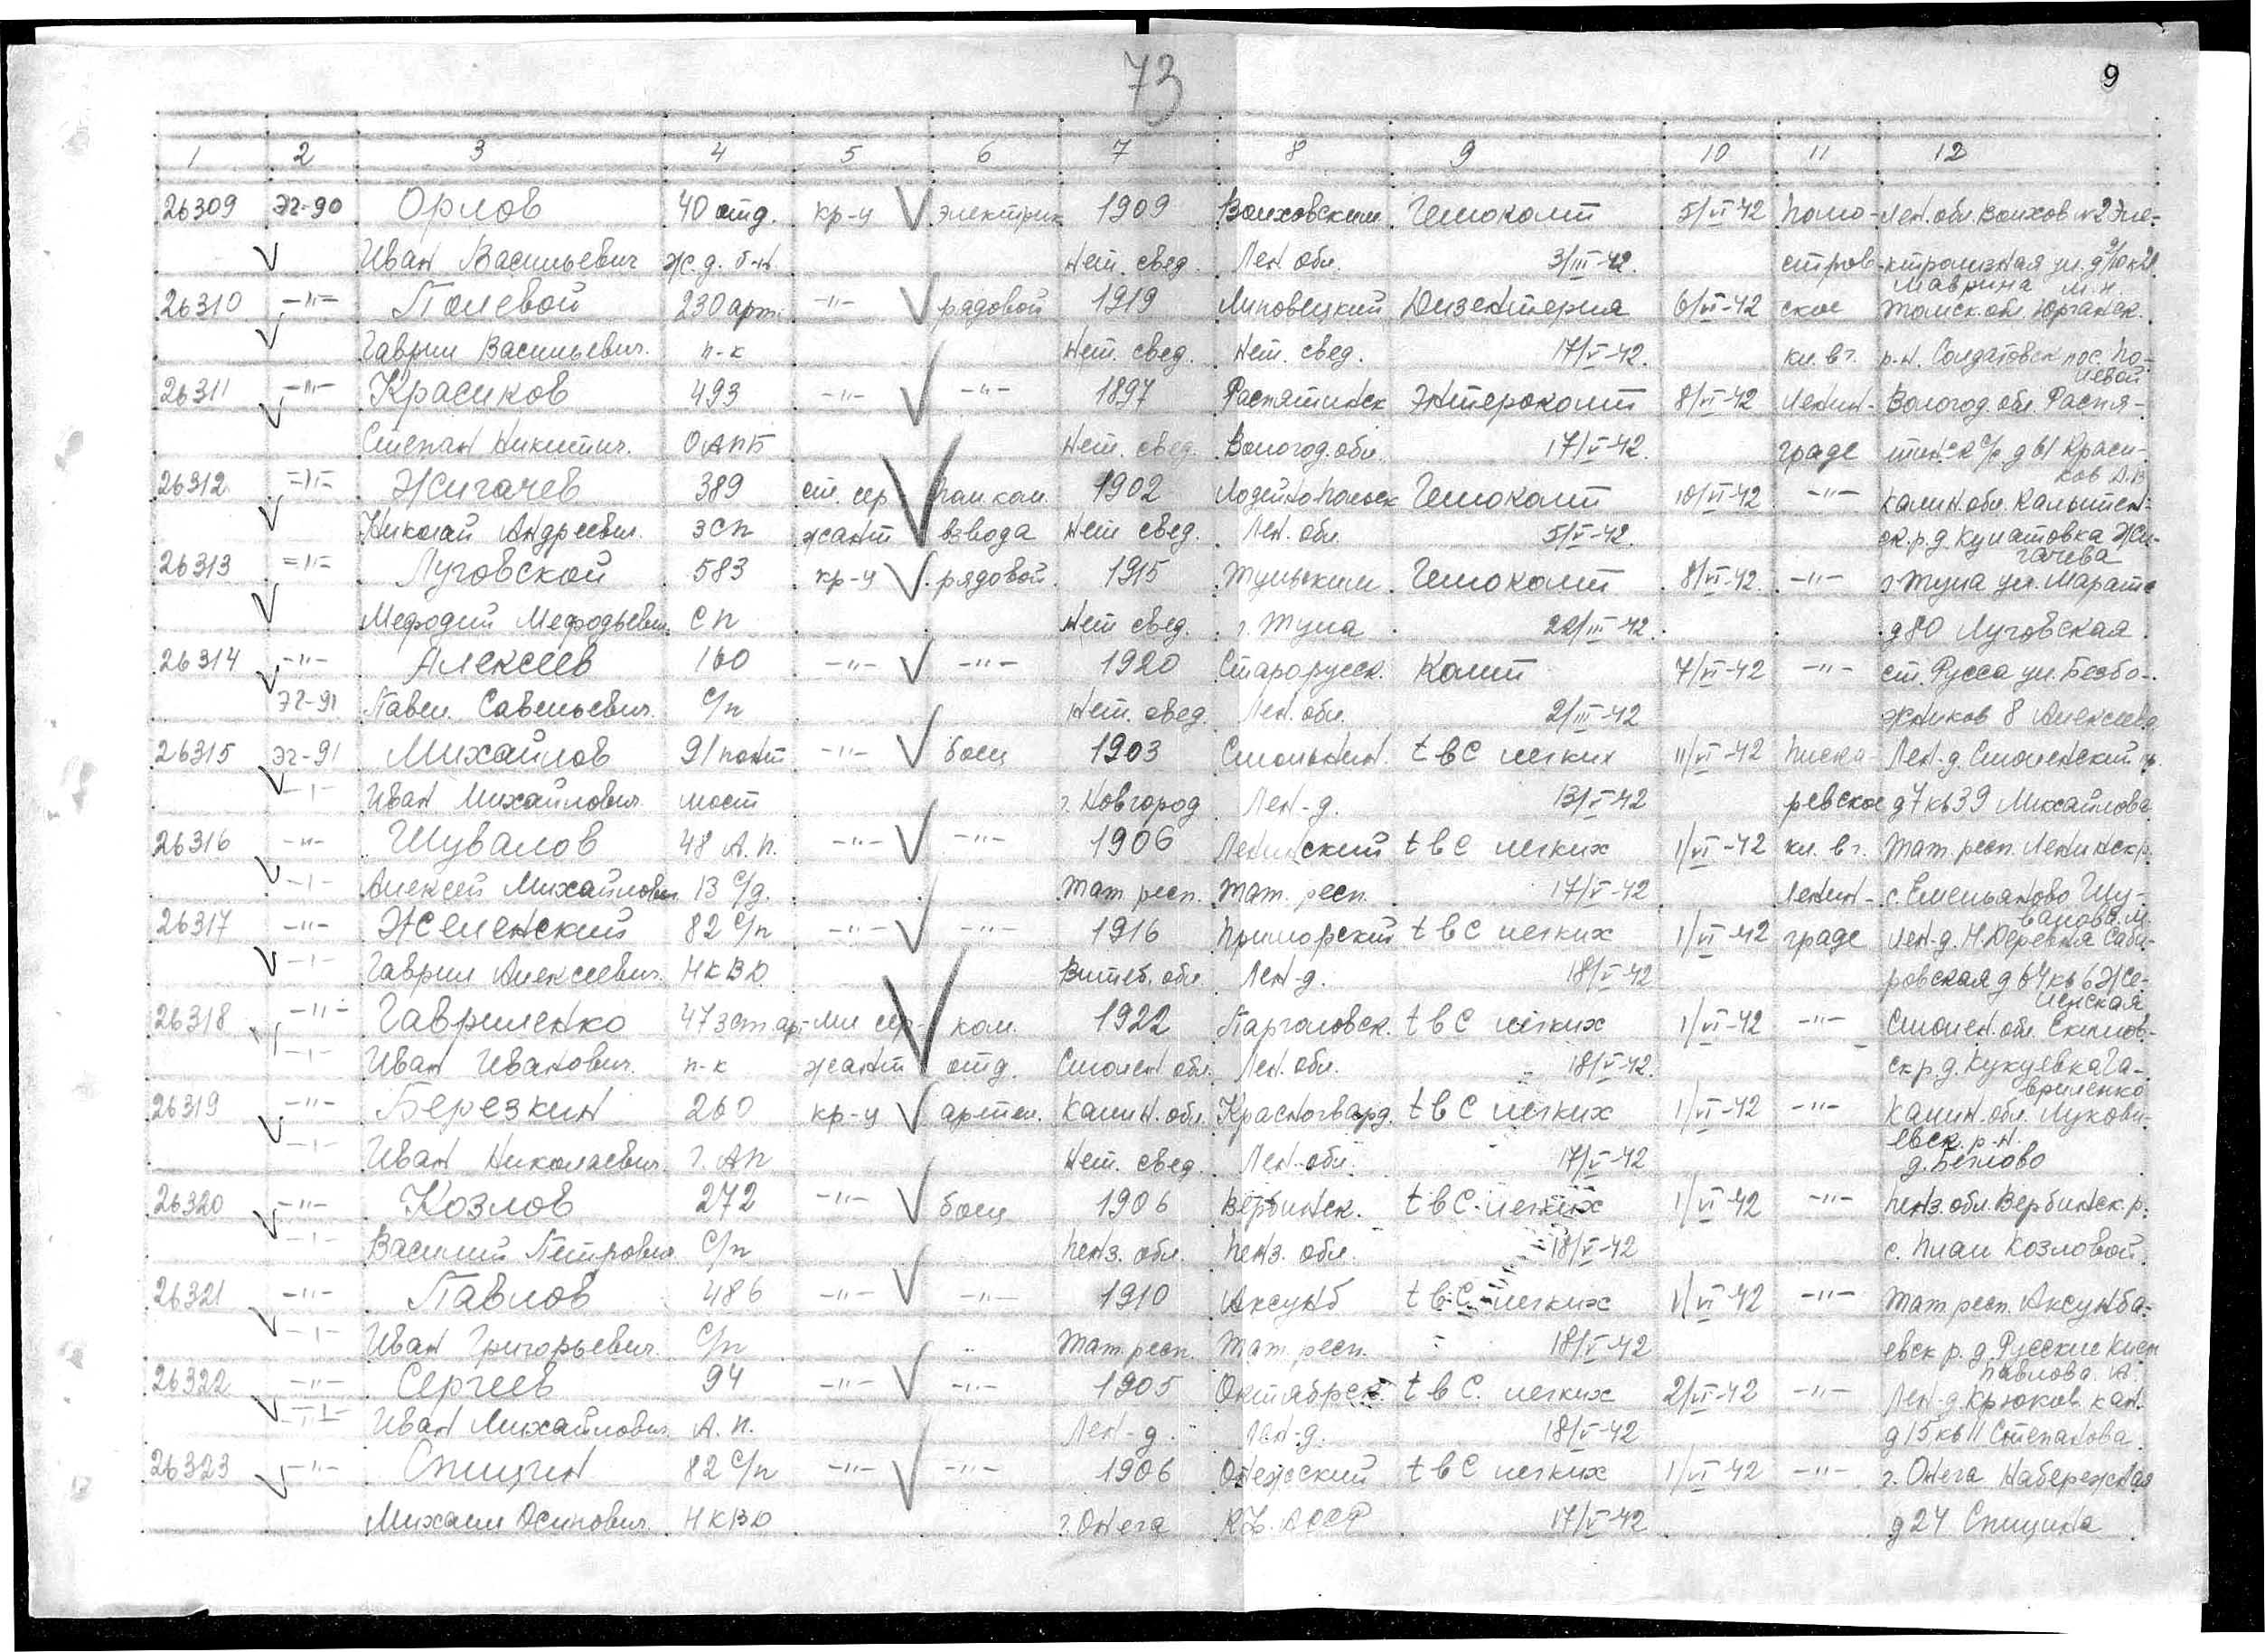 73
9
1 2 3 4 5 6 7 8 9 10 11 12
26309 эг-90 Орлов 40 отд. кр-ц электрик 1909 Волховским Гемоколит 5/VI-42 Поло- Лен. обл. Волхов №2 Эле-
Иван Васильевич ж.д. б-н. Нет. свед. Лен обл. 3/III-42. стров- ктролизная ул. д/10 к21.
Маврина М.Н.
26310 -"- Полевой 230 арт. -"- рядовой 1919 Липовецкий Дизентерия 6/VI-42 ское Томск. обл. Юрганск.
Гаврил Васильевич. п-к Нет. свед. Нет. свед. 17/V-42. кл. в г. р-н. Солдатовск пос. По-
левой
26311 -"- Красиков 493 -"- -"- 1897 Распятинск Энтероколит 8/VI-42 Ленин- Вологод. обл. Распя-
Степан Никитич. ОАПБ Нет. свед. Вологод. обл. 17/V-42. граде с/с д 61 Краси-
ков
26312 -"- Жигачев 389 ст. сер Пом ком. 1902 Лодейнопольск Гемоколит 10/VI-42 -"- Калин. обл.
Николай Андреевич. ЗСП жант взвода Нет свед. Лен. обл. 5/V-42. ск. р. д Жи-
гачева
26313 -"- Луговской 583 кр-ц рядовой 1915 Тульским Гемоколит 8/VI-42. -"- г. Тула ул. Марата
Мефодий Мефодьевич. СП Нет свед. г. Тула 22/III-42. д 80 Луговская
26314 -"- Алексеев 160 -"- -"- 1920 Старорусск. Колит 7/VI-42 -"- ст. Русса ул. Безбо-
эг-91 Павел Савельевич. С/п Нет. свед. Лен. обл. 2/III-42 жников 8 Алексеева
26315 эг-91 Михайлов 91 понт -"- боец 1903 Смольнин. tbc легких 11/VI-42 Писка- Лен-д. Смоленский пр.
-"- Иван Михайлович. мост г. Новгород Лен-д. 13/V-42 ревское д 7 кв 39 Михайлова
26316 -"- Шувалов 48 А.П. -"- -"- 1906 Ленинский tbc легких 1/VI-42 кл. в г. Тат. респ. Ленинск р.
-"- Алексей Михайлович 13 С/д. Тат. респ. Тат. респ. 17/V-42 Ленин- с. Емельяново Шу-
валова. М.
26317 -"- Желенский 82 С/п -"- -"- 1916 Приморский tbc легких 1/VI-42 граде Лен-д. Н. Деревня Саби-
-"- Гаврил Алексеевич. НКВД Витеб. обл. Лен-д. 18/V-42 ровская д 64 кв 6 Же-
ленская
26318 -"- Гавриленко 473 арт- мл сер- ком. 1922 Парголовск. tbc легких 1/VI-42 -"- Смолен. обл.
-"- Иван Иванович. п-к жант отд. Смолен обл. Лен. обл. 18/V-42. ск р. д. Кукуевка Га-
вриленко
26319 -"- Березкин 260 кр-ц артел. Калин. обл. Красногвард. tbc легких 1/VI-42 -"- Калин. обл. Лукови-
-"- Иван Николаевич. г. АП Нет. свед. Лен-обл. 17/V-42 евск. р-н.
д. Беглово
26320 -"- Козлов 272 -"- боец 1906 Вербинск. tbc легких 1/VI-42 -"- Пенз. обл. Вербинск. р.
-"- Василий Петрович. С/п Пенз. обл. Пенз. обл. 18/V-42 с. Козловой
26321 -"- Павлов 486 -"- -"- 1910 Аксунб tbc легких 1/VI-42 -"- Тат. респ. Аксунба-
-"- Иван Григорьевич. С/п Тат. респ. Тат. респ. 18/V-42 евск р. д. Русские Кист
Павлова. А.
26322 -"- Сергеев 94 -"- -"- 1905 Октябрск. tbc. легких 2/VI-42 -"- Лен-д. Крюков. кан.
-"- Иван Михайлович. А.П. Лен-д. Лен-д. 18/V-42 д 15 кв 11 Степанова
26323 -"- Спицин 82 С/п -"- -"- 1906 Онежский tbc легких 1/VI-42 -"- г. Онега Набережная
Михаил Осипович. НКВД г. Онега АССР 17/V-42 д 24 Спицина